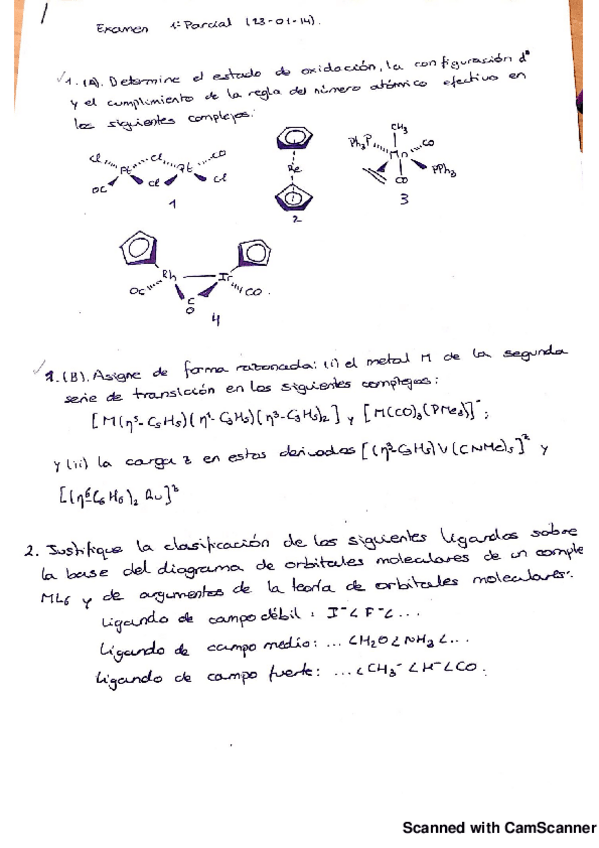 Examen 1º Parcial (23-01-14).
1. (A). Determine el estado de oxidación, la configuración dⁿ
y el cumplimiento de la regla del número atómico efectivo en
los siguientes complejos:
Cl Cl CO
Pt Pt
OC Cl Cl
1
Re
2
CH₃
Ph₃P CO
Mn
PPh₃
CO
3
Rh Ir
OC CO.
C
O
4
1.(B). Asigne de forma razonada: (i) el metal M de la segunda
serie de transición en los siguientes complejos:
[M(η⁵-C₅H₅)(η¹-C₃H₅)(η³-C₃H₅)₂] y [M(CO)₃(PMe₃)]⁻;
y (ii) la carga z en estos derivados [(η³-C₃H₅)V(CNMe)₅]ᶻ y
[(η⁶C₆H₆)₂Ru]ᶻ
2. Justifique la clasificación de los siguientes ligandos sobre
la base del diagrama de orbitales moleculares de un comple
ML₆ y de argumentos de la teoría de orbitales moleculares:
Ligando de campo débil: I⁻<F⁻<...
Ligando de campo medio: ...<H₂O<NH₃<...
Ligando de campo fuerte: ...<CH₃⁻<H⁻<CO.
Scanned with CamScanner